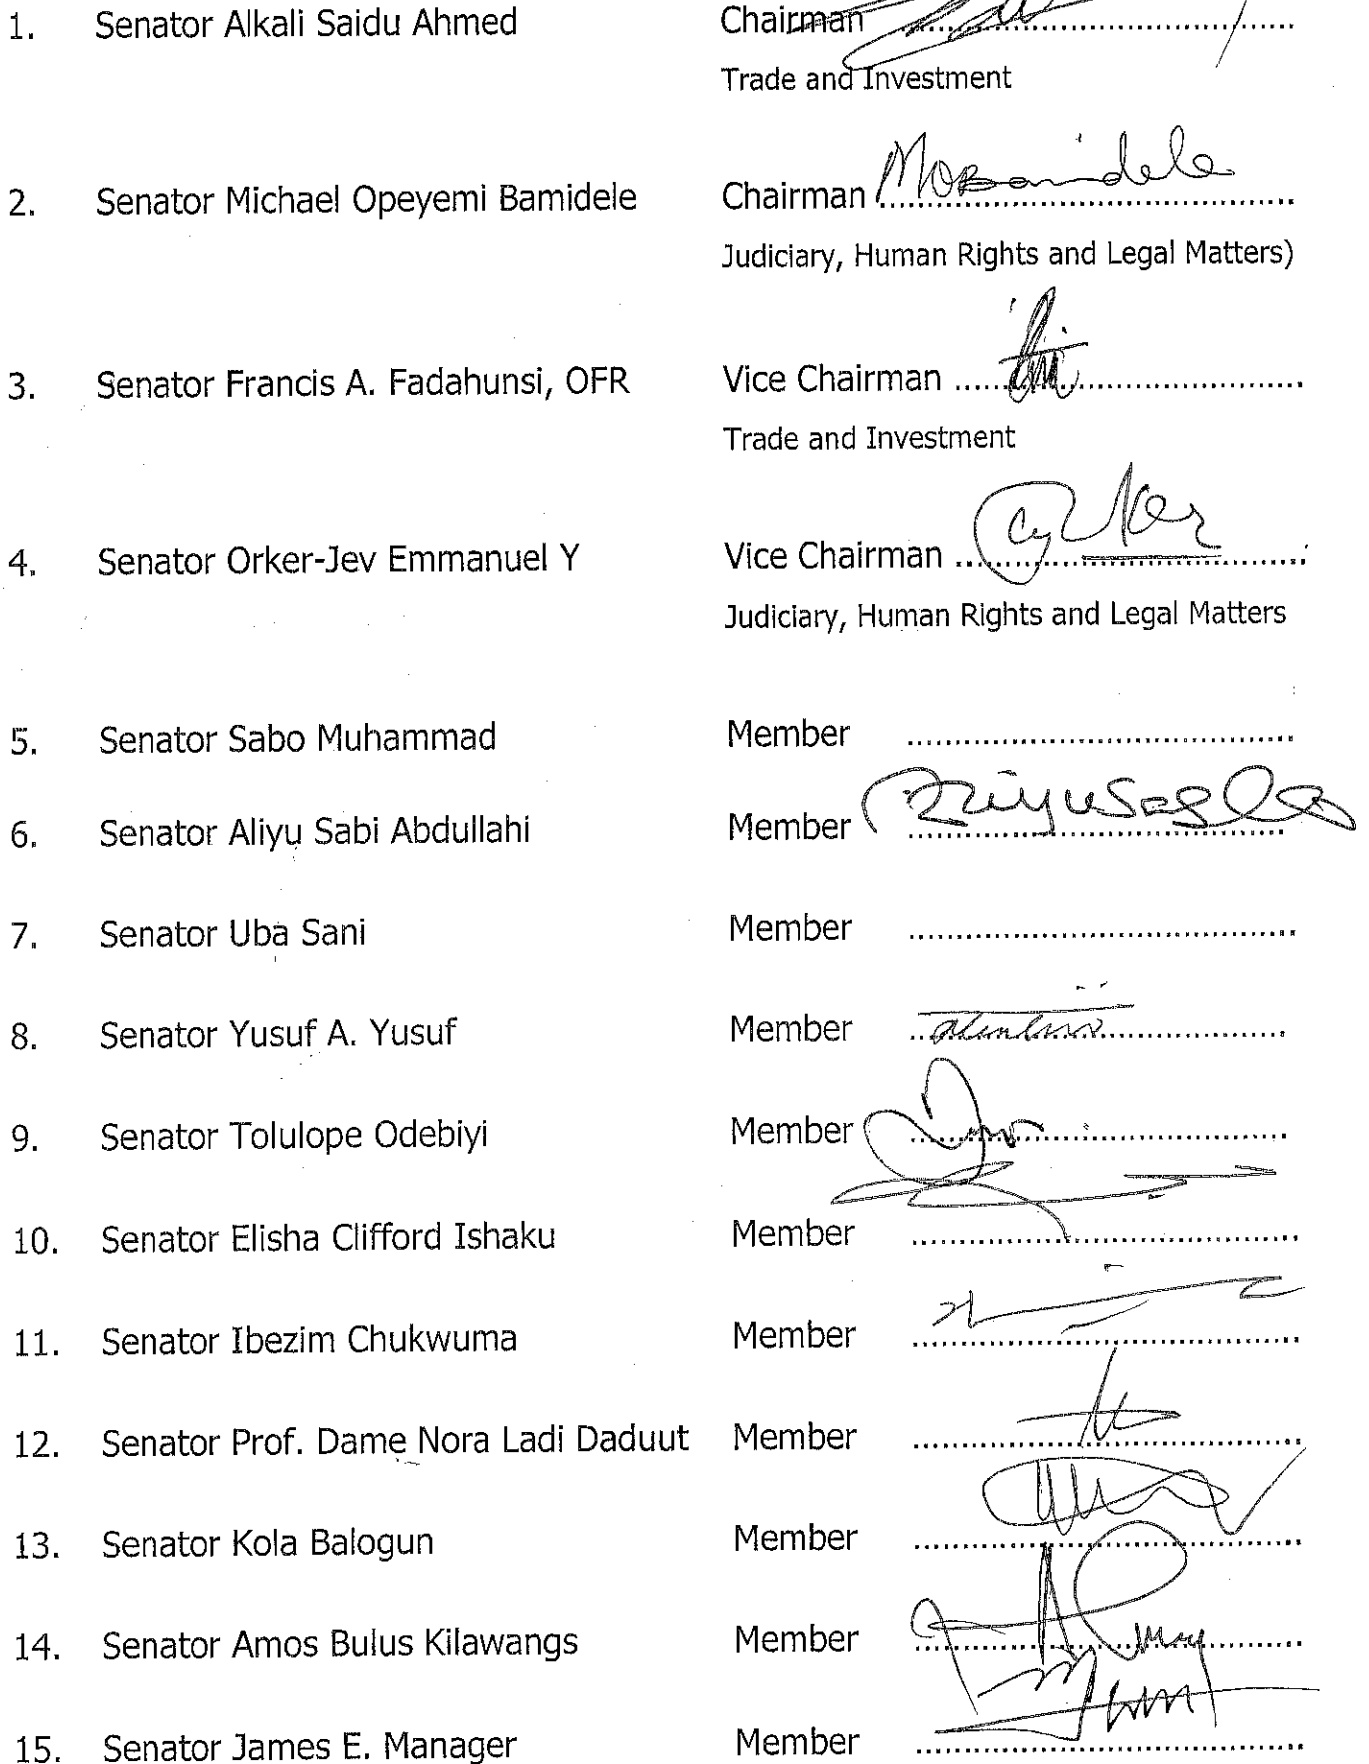 1. Senator Alkali Saidu Ahmed Chairman ........................................
Trade and Investment
2. Senator Michael Opeyemi Bamidele Chairman MOBamidele ........................................
Judiciary, Human Rights and Legal Matters)
3. Senator Francis A. Fadahunsi, OFR Vice Chairman ........................................
Trade and Investment
4. Senator Orker-Jev Emmanuel Y Vice Chairman ........................................
Judiciary, Human Rights and Legal Matters
5. Senator Sabo Muhammad Member ........................................
6. Senator Aliyu Sabi Abdullahi Member ........................................
7. Senator Uba Sani Member ........................................
8. Senator Yusuf A. Yusuf Member ........................................
9. Senator Tolulope Odebiyi Member ........................................
10. Senator Elisha Clifford Ishaku Member ........................................
11. Senator Ibezim Chukwuma Member ........................................
12. Senator Prof. Dame Nora Ladi Daduut Member ........................................
13. Senator Kola Balogun Member ........................................
14. Senator Amos Bulus Kilawangs Member ........................................
15. Senator James E. Manager Member ........................................